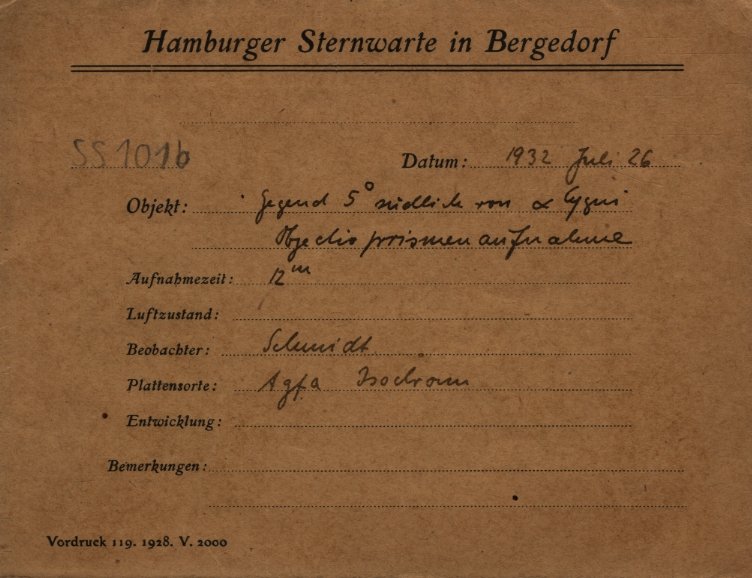 Hamburger Sternwarte in Bergedorf
SS 101b
Datum: 1932 Juli 26
Objekt: Gegend 5° südlich von α Cygni
Objectivprismenaufnahme
Aufnahmezeit: 12ᵐ
Luftzustand:
Beobachter: Schmidt
Plattensorte: Agfa Isochrom
Entwicklung:
Bemerkungen:
Vordruck 119. 1928. V. 2000